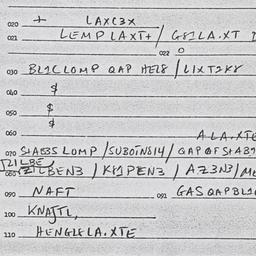 020 + LAXC3X
021 LEMPLAXT+/ G81LA.XT
022 0
030 BL1CLOMP QAP HEL8 / LIXT2K8
040 $
050 $
$
060 A LA.XTE
070 S+A835 LOMP /SUBOIN814/ QAPØFS+A3
ZILBE
080 ZILBEN3 / K81PEN3 / AZ3N3/
090 NAFT
091 GASQAPBL1
100 KNAJTL,
110 HENGL8LA.XTE